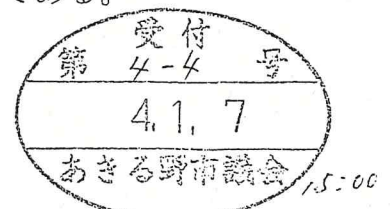 である。
受付
第 4-4 号
4.1.7
あきる野市議会
15:00